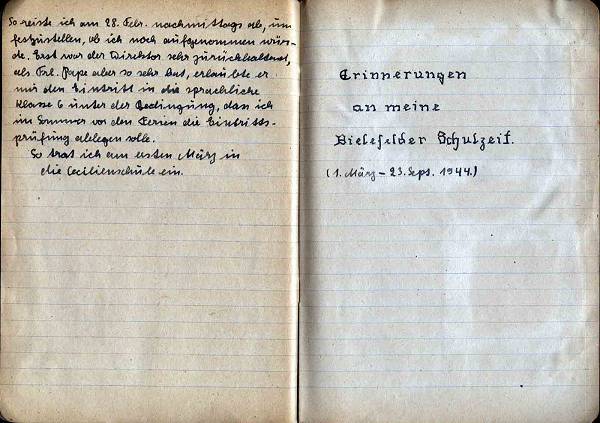 So reiste ich am 28. Febr. nachmittags ab, um
festzustellen, ob ich noch aufgenommen wür-
de. Erst war der Direktor sehr zurückhaltend,
als Frl. Pape aber so sehr bat, erlaubte er
mir den Eintritt in die sprachliche
Klasse 6 unter der Bedingung, dass ich
im Sommer vor den Ferien die Eintritts-
prüfung ablegen solle.
So trat ich am ersten März in
die Cecilienschule ein.
Erinnerungen
an meine
Bielefelder Schulzeit.
(1. März – 23. Sept. 1944.)